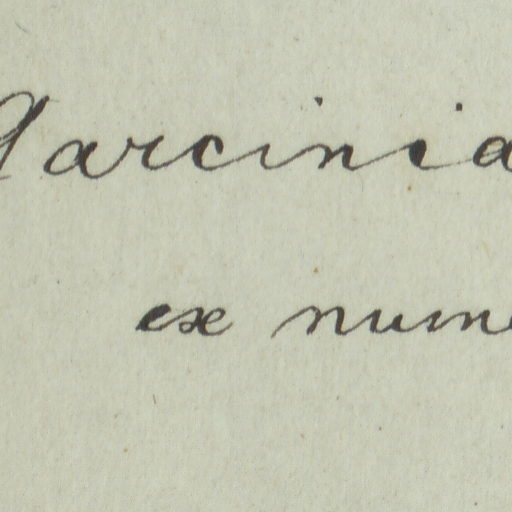 Garcinia
ex nume